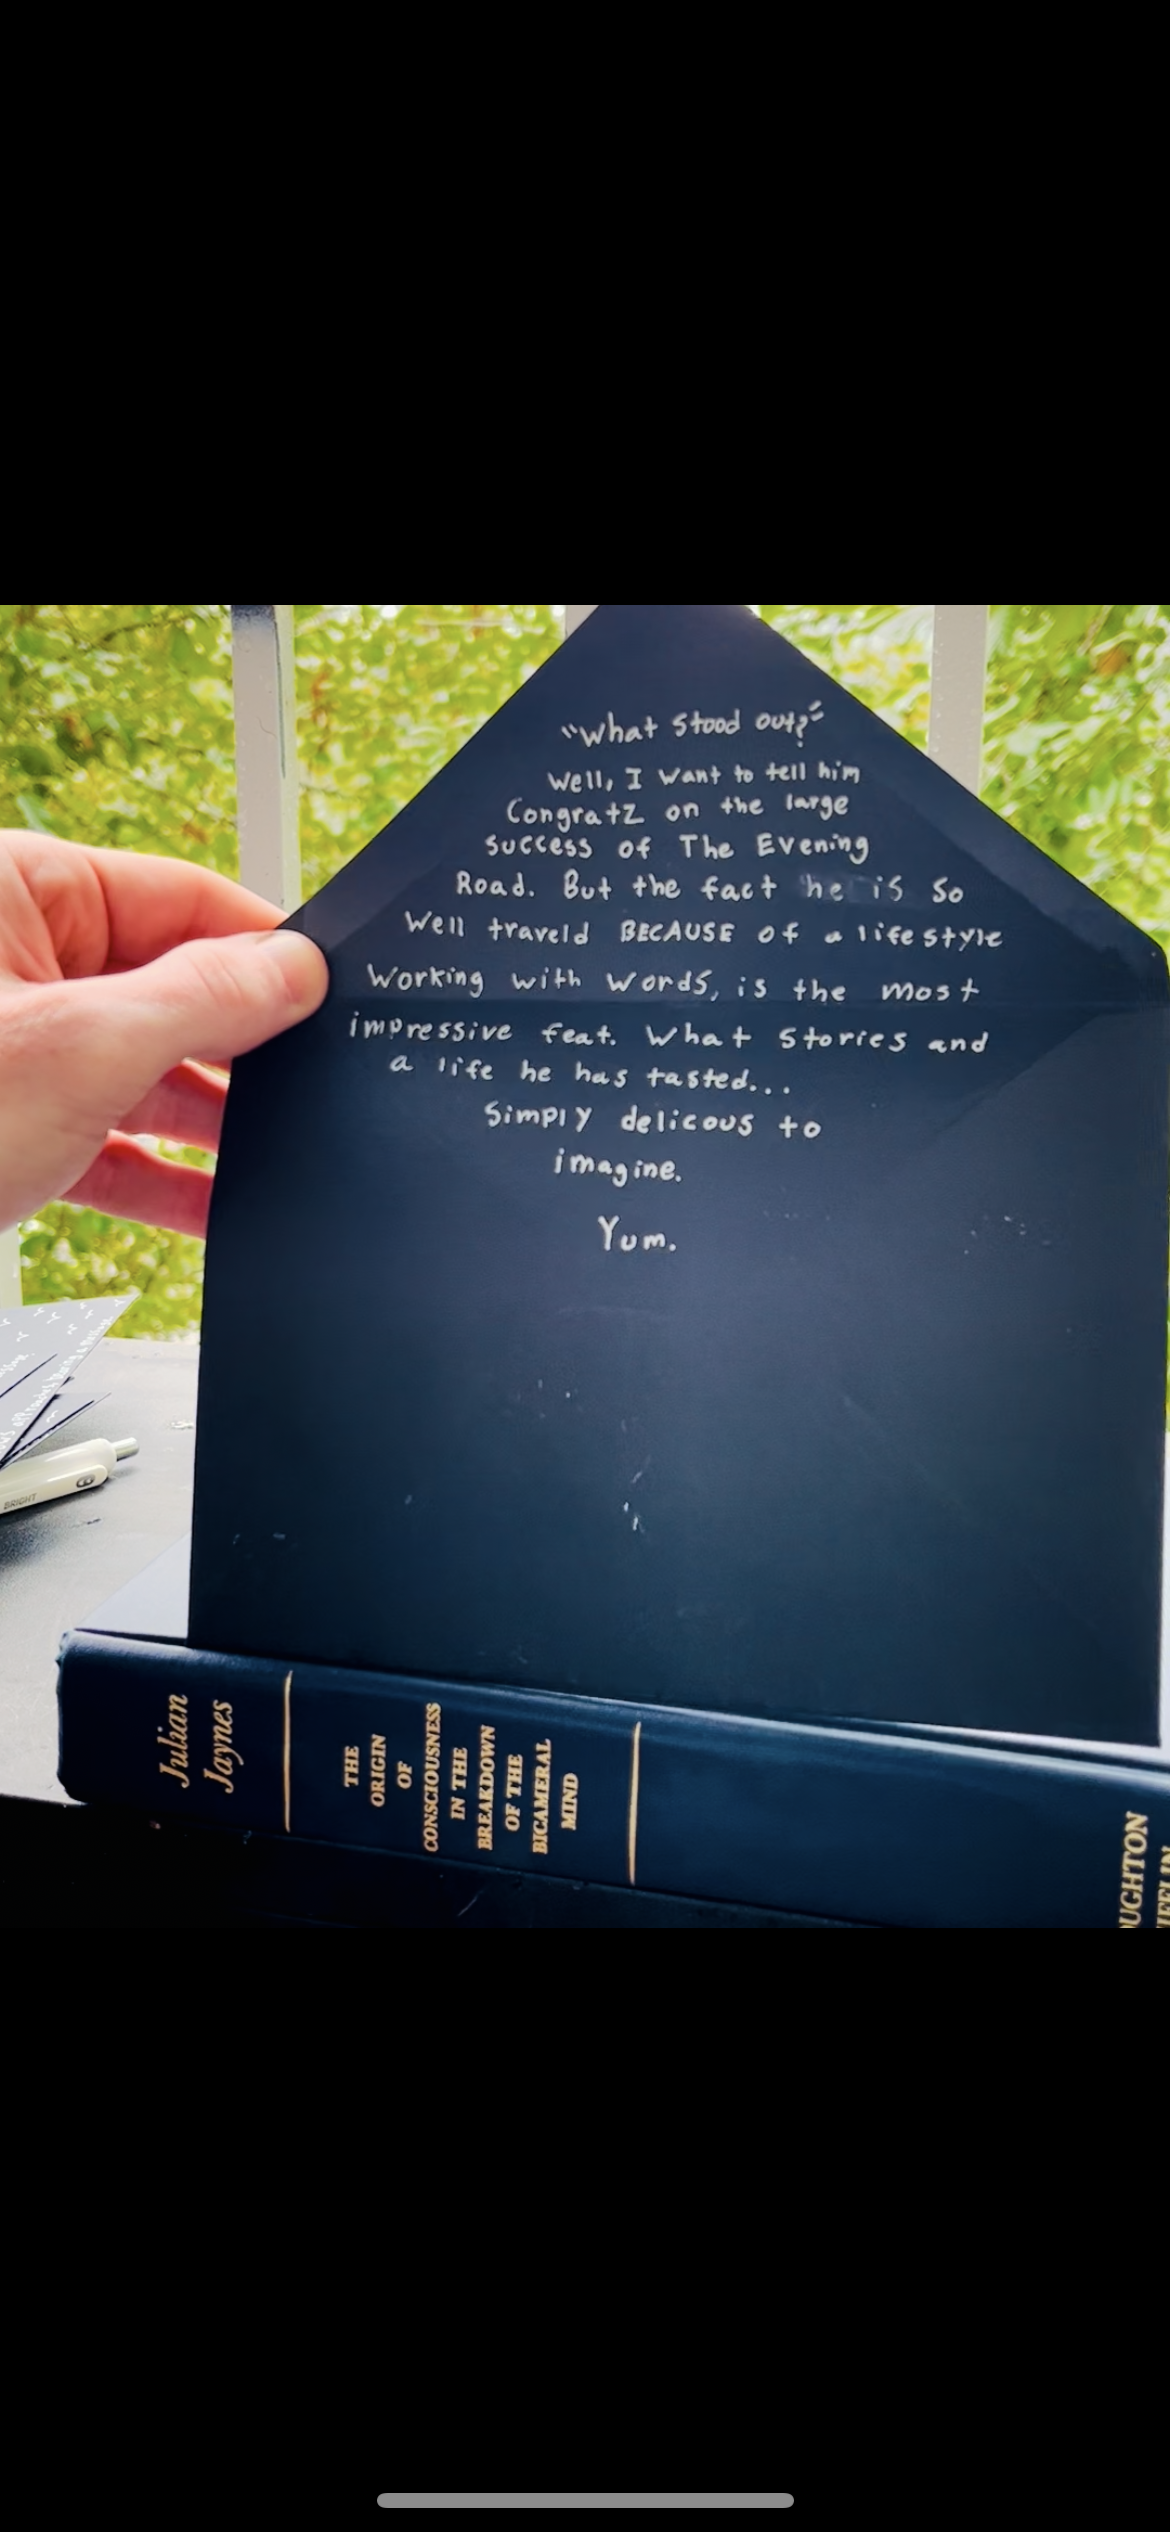 "What stood out?"
Well, I want to tell him
Congratz on the large
success of The Evening
Road. But the fact he is so
well traveld BECAUSE of a lifestyle
working with words, is the most
impressive feat. What stories and
a life he has tasted...
Simply delicous to
imagine.
Yum.
BRIGHT
Julian
Jaynes
THE
ORIGIN
OF
CONSCIOUSNESS
IN THE
BREAKDOWN
OF THE
BICAMERAL
MIND
OUGHTON